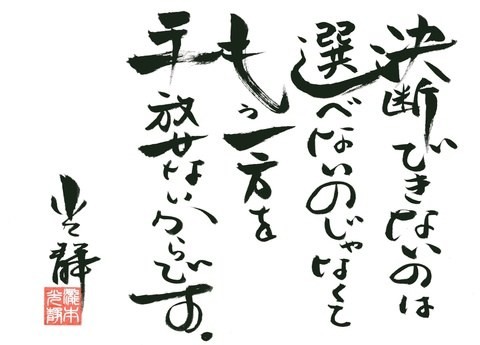 決断できないのは
選べないのじゃなくて
もう一方を
手放せないからです。
光静
瀧本光静